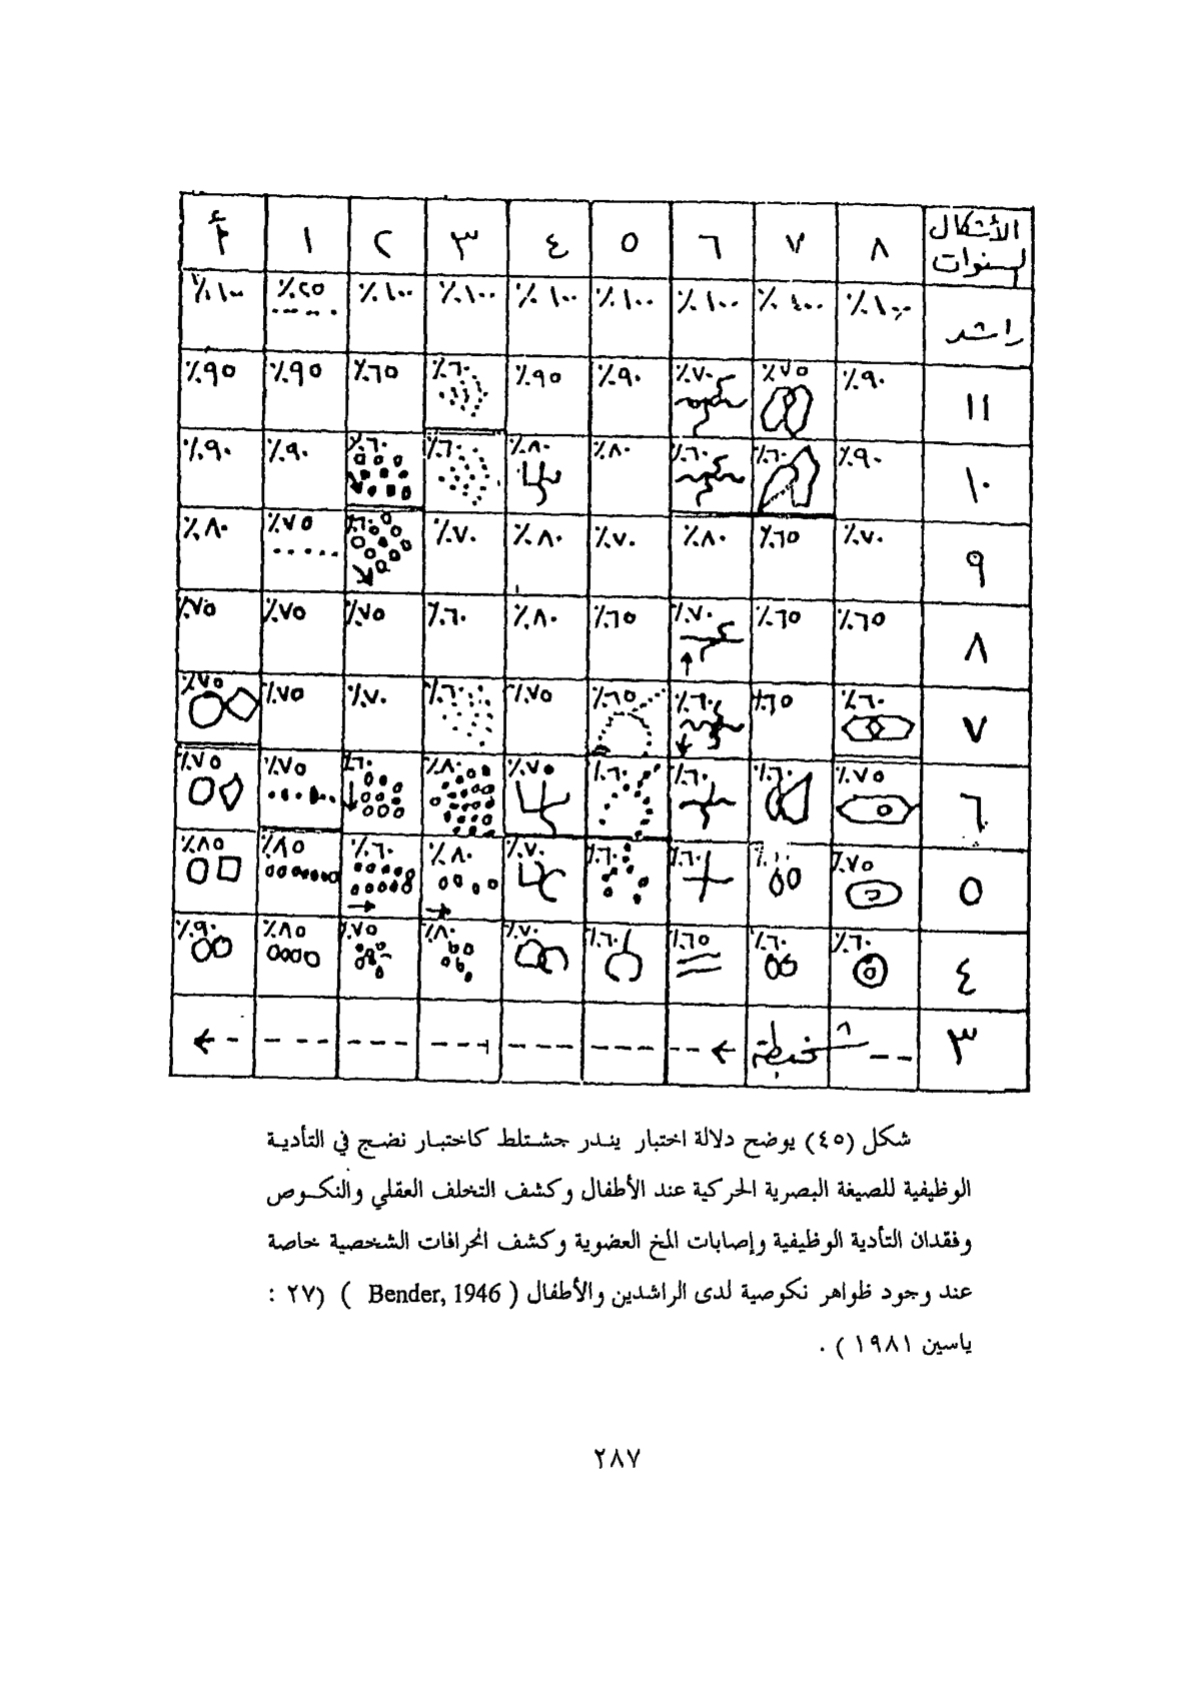 الأشكال السنوات ٨ ٧ ٦ ٥ ٤ ٣ ٢ ١ أ
راشد ٪١٠٠ ٪١٠٠ ٪١٠٠ ٪١٠٠ ٪١٠٠ ٪١٠٠ ٪٢٥ ٪١٠٠
١١ ٪٩٠ ٪٧٥ ٪٧٠ ٪٩٠ ٪٩٥ ٪٦٠ ٪٦٥ ٪٩٥ ٪٩٥
١٠ ٪٩٠ ٪٦٠ ٪٦٠ ٪٨٠ ٪٨٠ ٪٦٠ ٪٦٠ ٪٩٠ ٪٩٠
٩ ٪٧٠ ٪٦٥ ٪٨٠ ٪٧٠ ٪٨٠ ٪٧٠ ٪٦٠ ٪٧٥ ٪٨٠
٨ ٪٦٥ ٪٦٥ ٪٧٠ ٪٦٥ ٪٨٠ ٪٦٠ ٪٧٥ ٪٧٥ ٪٧٥
٧ ٪٦٠ ٪٦٥ ٪٦٠ ٪٦٥ ٪٧٥ ٪٦٠ ٪٧٠ ٪٧٥ ٪٧٥
٦ ٪٧٥ ٪٦٠ ٪٦٠ ٪٦٠ ٪٧٠ ٪٨٠ ٪٦٠ ٪٧٥ ٪٧٥
٥ ٪٧٥ ٪٦٠ ٪٦٠ ٪٧٠ ٪٨٠ ٪٦٠ ٪٨٥ ٪٨٥
٤ ٪٦٠ ٪٦٠ ٪٦٥ ٪٦٠ ٪٧٠ ٪٨٠ ٪٧٥ ٪٨٥ ٪٩٠
٣ شخبطة
شكل (٤٥) يوضح دلالة اختبار يندر جشتلط كاختبار نضج في التأدية
الوظيفية للصيغة البصرية الحركية عند الأطفال وكشف التخلف العقلي والنكوص
وفقدان التأدية الوظيفية وإصابات المخ العضوية وكشف انحرافات الشخصية خاصة
عند وجود ظواهر نكوصية لدى الراشدين والأطفال ( Bender, 1946 ) (٢٧ :
ياسين ١٩٨١ ) .
٢٨٧